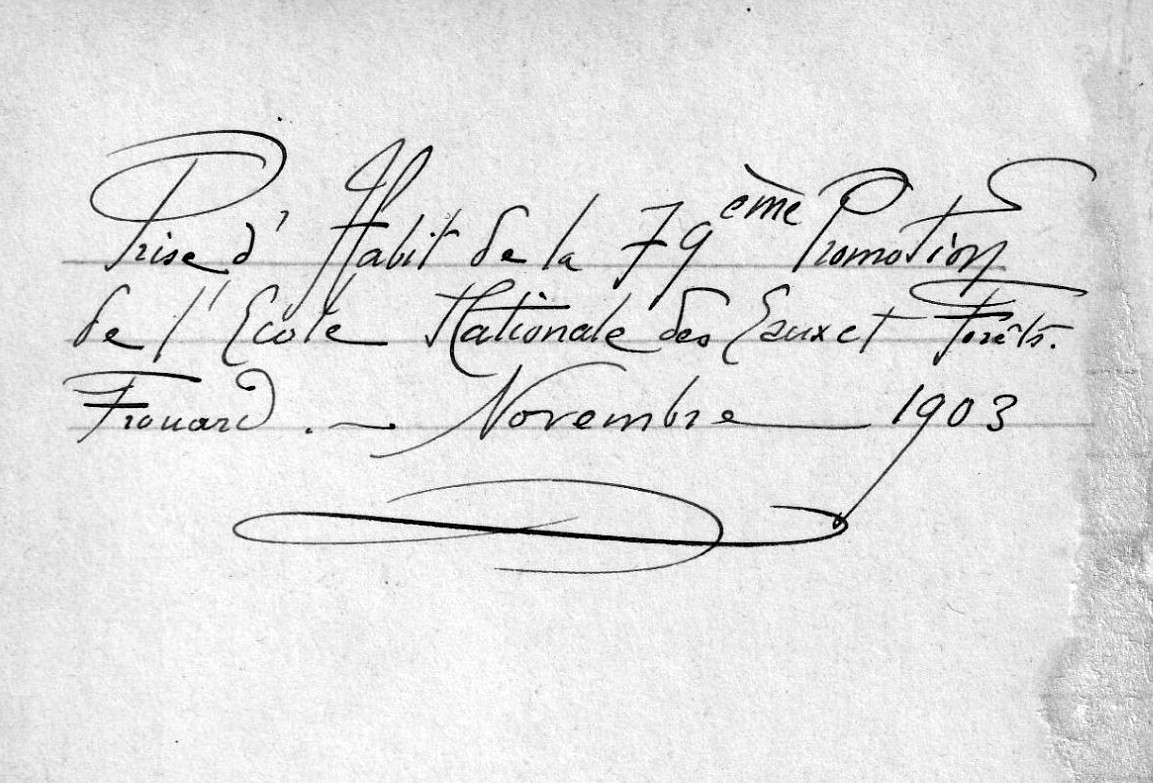 Prise d'Habit de la 79ème Promotion
de l'Ecole Nationale des Eaux et Forêts.
Frouard. — Novembre 1903